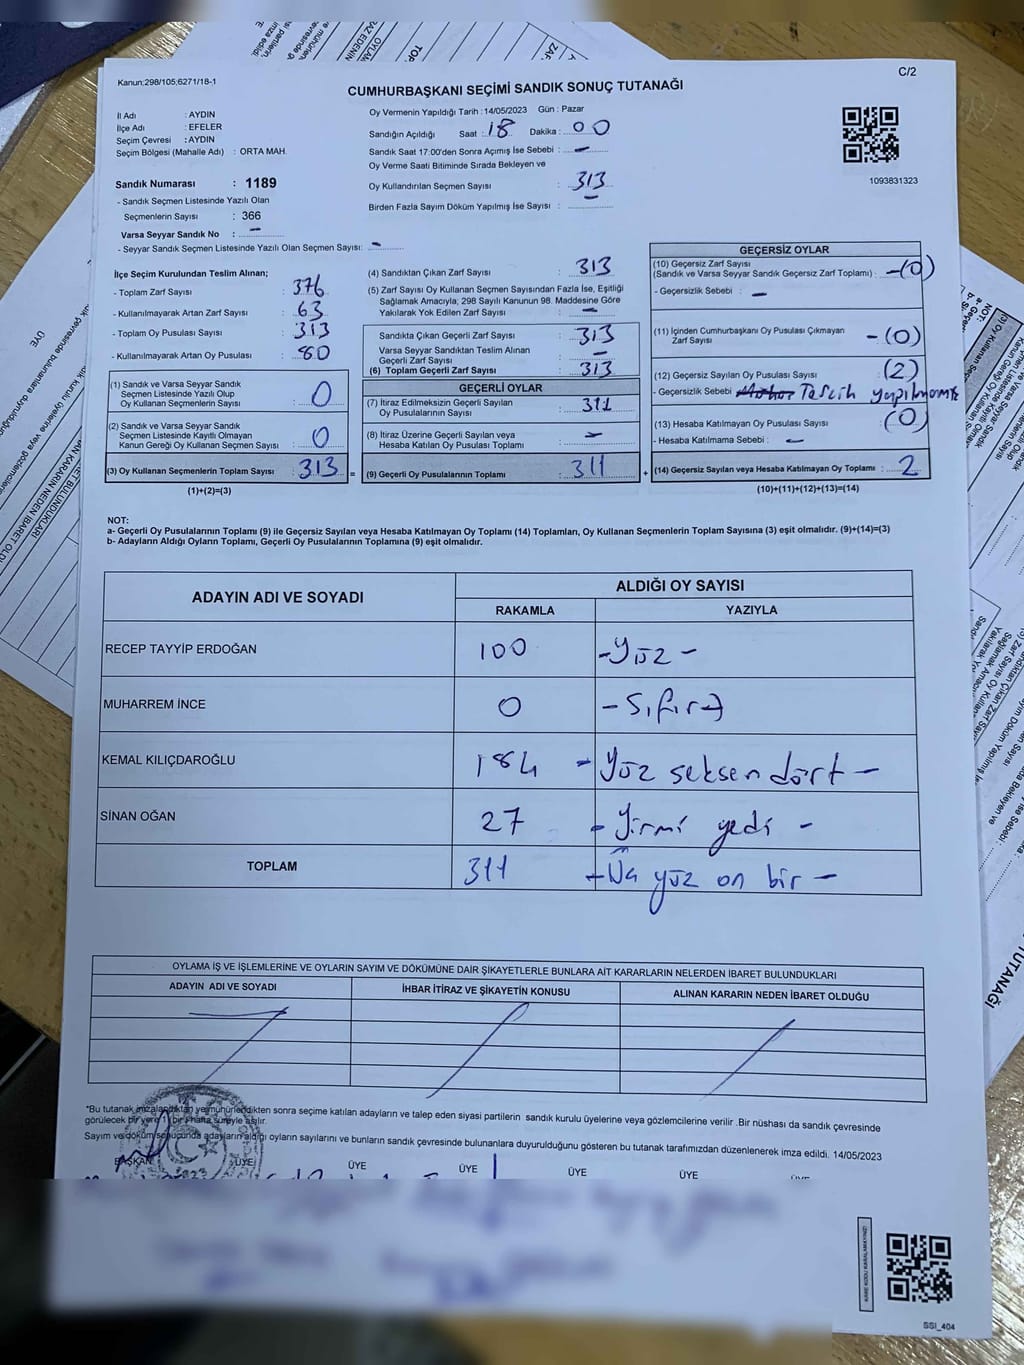 Kanun:298/105,6271/18-1
C/2
CUMHURBAŞKANI SEÇİMİ SANDIK SONUÇ TUTANAĞI
İl Adı : AYDIN
İlçe Adı : EFELER
Seçim Çevresi : AYDIN
Seçim Bölgesi (Mahalle Adı) : ORTA MAH.
Sandık Numarası : 1189
- Sandık Seçmen Listesinde Yazılı Olan
Seçmenlerin Sayısı : 366
Varsa Seyyar Sandık No : -
- Seyyar Sandık Seçmen Listesinde Yazılı Olan Seçmen Sayısı: -
Oy Vermenin Yapıldığı Tarih : 14/05/2023 Gün : Pazar
Sandığın Açıldığı Saat : 18 Dakika : 00
Sandık Saat 17:00'den Sonra Açmış İse Sebebi : -
Oy Verme Saati Bitiminde Sırada Bekleyen ve
Oy Kullandırılan Seçmen Sayısı : 313
Birden Fazla Sayım Döküm Yapılmış İse Sayısı : -
1093831323
İlçe Seçim Kurulundan Teslim Alınan;
- Toplam Zarf Sayısı : 376
- Kullanılmayarak Artan Zarf Sayısı : 63
- Toplam Oy Pusulası Sayısı : 313
- Kullanılmayarak Artan Oy Pusulası : 80
(1) Sandık ve Varsa Seyyar Sandık
Seçmen Listesinde Yazılı Olup
Oy Kullanan Seçmenlerin Sayısı : 0
(2) Sandık ve Varsa Seyyar Sandık
Seçmen Listesinde Kayıtlı Olmayan
Kanun Gereği Oy Kullanan Seçmen Sayısı : 0
(3) Oy Kullanan Seçmenlerin Toplam Sayısı : 313
(1)+(2)=(3)
=
(4) Sandıktan Çıkan Zarf Sayısı : 313
(5) Zarf Sayısı Oy Kullanan Seçmen Sayısından Fazla İse, Eşitliği
Sağlamak Amacıyla; 298 Sayılı Kanunun 98. Maddesine Göre
Yakılarak Yok Edilen Zarf Sayısı : -
Sandıkta Çıkan Geçerli Zarf Sayısı : 313
Varsa Seyyar Sandıktan Teslim Alınan
Geçerli Zarf Sayısı : -
(6) Toplam Geçerli Zarf Sayısı : 313
GEÇERLİ OYLAR
(7) İtiraz Edilmeksizin Geçerli Sayılan
Oy Pusulalarının Sayısı : 311
(8) İtiraz Üzerine Geçerli Sayılan veya
Hesaba Katılan Oy Pusulası Toplamı : -
(9) Geçerli Oy Pusulalarının Toplamı : 311
+
GEÇERSİZ OYLAR
(10) Geçersiz Zarf Sayısı
(Sandık ve Varsa Seyyar Sandık Geçersiz Zarf Toplamı) : -(0)
- Geçersizlik Sebebi : -
(11) İçinden Cumhurbaşkanı Oy Pusulası Çıkmayan
Zarf Sayısı : -(0)
(12) Geçersiz Sayılan Oy Pusulası Sayısı : (2)
- Geçersizlik Sebebi : Tercih yapılmamış
(13) Hesaba Katılmayan Oy Pusulası Sayısı : (0)
- Hesaba Katılmama Sebebi : -
(14) Geçersiz Sayılan veya Hesaba Katılmayan Oy Toplamı : 2
(10)+(11)+(12)+(13)=(14)
NOT:
a- Geçerli Oy Pusulalarının Toplamı (9) ile Geçersiz Sayılan veya Hesaba Katılmayan Oy Toplamı (14) Toplamları, Oy Kullanan Seçmenlerin Toplam Sayısına (3) eşit olmalıdır. (9)+(14)=(3)
b- Adayların Aldığı Oyların Toplamı, Geçerli Oy Pusulalarının Toplamına (9) eşit olmalıdır.
ADAYIN ADI VE SOYADI
ALDIĞI OY SAYISI
RAKAMLA YAZIYLA
RECEP TAYYİP ERDOĞAN 100 -Yüz-
MUHARREM İNCE 0 -Sıfır-
KEMAL KILIÇDAROĞLU 184 -Yüz seksen dört-
SİNAN OĞAN 27 -Yirmi yedi-
TOPLAM 311 -Üç yüz on bir-
OYLAMA İŞ VE İŞLEMLERİNE VE OYLARIN SAYIM VE DÖKÜMÜNE DAİR ŞİKAYETLERLE BUNLARA AİT KARARLARIN NELERDEN İBARET BULUNDUKLARI
ADAYIN ADI VE SOYADI
İHBAR İTİRAZ VE ŞİKAYETİN KONUSU
ALINAN KARARIN NEDEN İBARET OLDUĞU
*Bu tutanak imzalandıktan ve mühürlendikten sonra seçime katılan adayların ve talep eden siyasi partilerin sandık kurulu üyelerine veya gözlemcilerine verilir .Bir nüshası da sandık çevresinde
görülecek bir yere 1 bir hafta süreyle asılır.
Sayım ve döküm sonucunda adayların aldığı oyların sayılarını ve bunların sandık çevresinde bulunanlara duyurulduğunu gösteren bu tutanak tarafımızdan düzenlenerek imza edildi. 14/05/2023
BAŞKAN ÜYE ÜYE ÜYE ÜYE ÜYE ÜYE
SSI_404